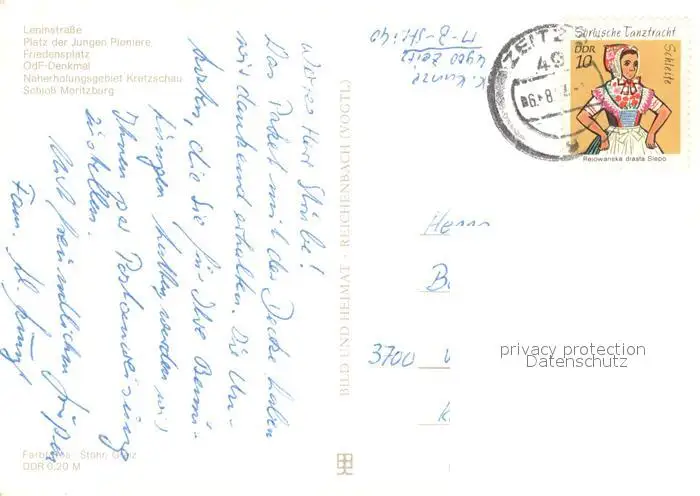 Leninstraße
Platz der Jungen Pioniere
Friedensplatz
OdF-Denkmal
Naherholungsgebiet Kretzschau
Schloß Moritzburg
Wertes Herr Stübe!
Das Paket mit der Decke haben
wir dankend erhalten. Die Un-
kosten, die Sie für Ihre Bemü-
hungen hatten, werden wir
Ihnen per Postanweisung
zustellen.
Mit freundlichen Grüßen
Fam. M.
DDR 0,20 M
BILD UND HEIMAT · REICHENBACH (VOGTL)
K. Kunze
4900 Zeitz
ZEITZ
49
Sorbische Tanztracht
DDR
10
Schleife
Rejowanska drasta Slepo
Herrn
3700
privacy protection
Datenschutz